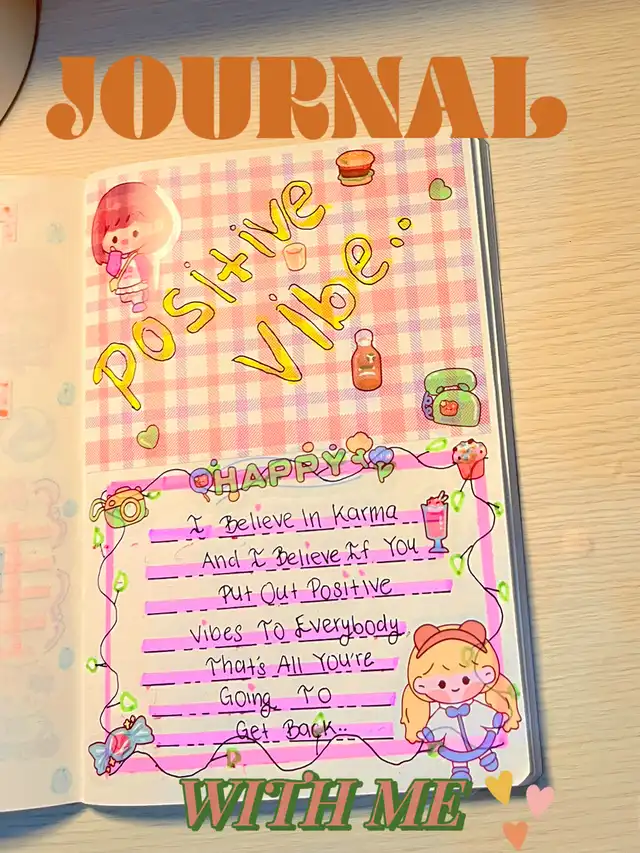 JOURNAL
Positive
Vibe..
HAPPY
I Believe In Karma
And I Believe If You
Put Out Positive
Vibes To Everybody
That's All You're
Going To
Get Back..
WITH ME